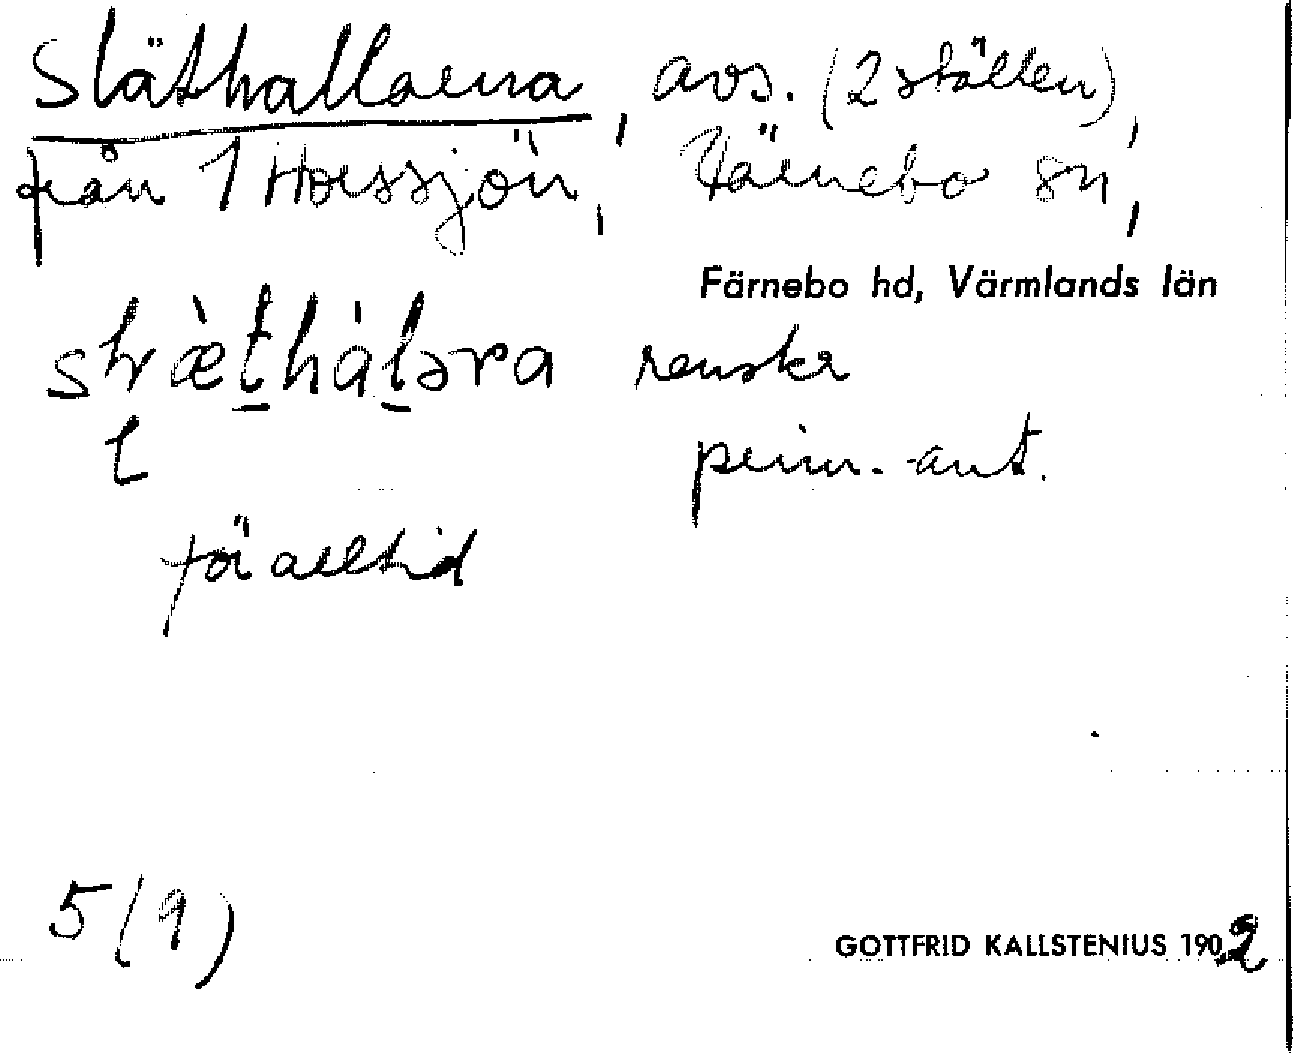 Släthallarna, avs. (2 ställen),
från 1 Horssjön, Färnebo sn,
Färnebo hd, Värmlands län
slæ̀thàləra renskr
l prim.-ant.
för alltid
5 (9)
GOTTFRID KALLSTENIUS 1902